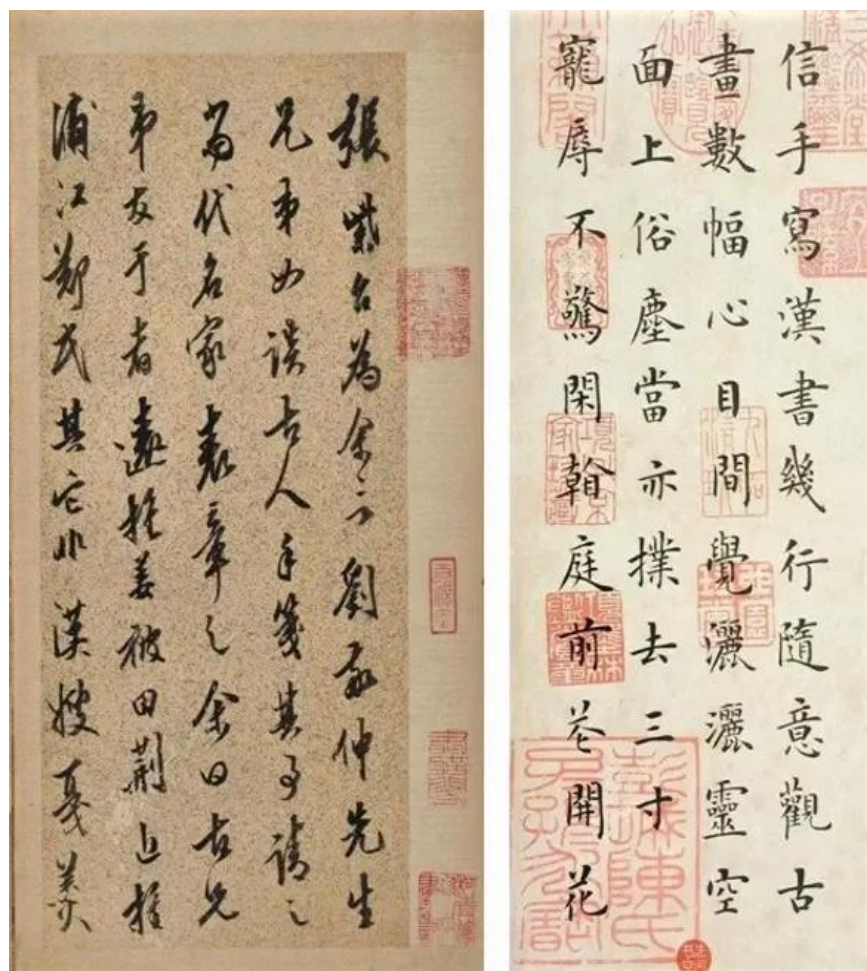 張紫台為余言劉仲先生
兄弟如談古人手箋其請之
當代名家表章之余曰古兄
弟友于者遠推姜被田荊近推
浦江鄭氏其它非漢嫂戛羹
信手寫漢書幾行隨意觀古
畫數幅心目間覺灑灑靈空
面上俗塵當亦撲去三寸
寵辱不驚閑翰庭前花開花